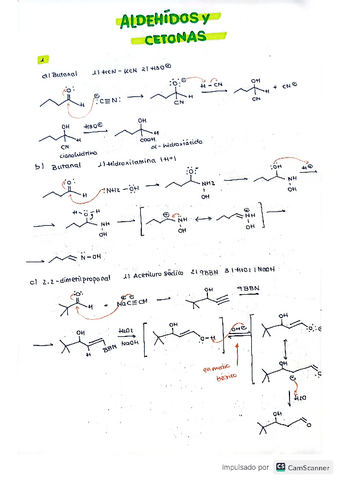 ALDEHÍDOS y
CETONAS
1
a) Butanal 1) HCN - KCN 2) H3O⊕
:C≡N:
H - CN
OH
CN
+ CN⊖
OH
H
CN
H3O⊕
OH
H
COOH
cianohidrina
α-hidroxiácido
b) Butanal 1) Hidroxilamina (H+)
:NH2 - OH
NH2
OH
:OH
NH
OH
H⊕
NH
OH
NH
OH
NH
OH
N - OH
c) 2,2-dimetilpropanal 1) Acetiluro Sódico 2) 9BBN 3) H2O2 | NaOH
H
+ NaC≡CH
OH
9BBN
OH
H
BBN
H2O2
NaOH
OH
O-H
OH⊖
OH
en medio
básico
OH
H2O
OH
O
Impulsado por CS CamScanner